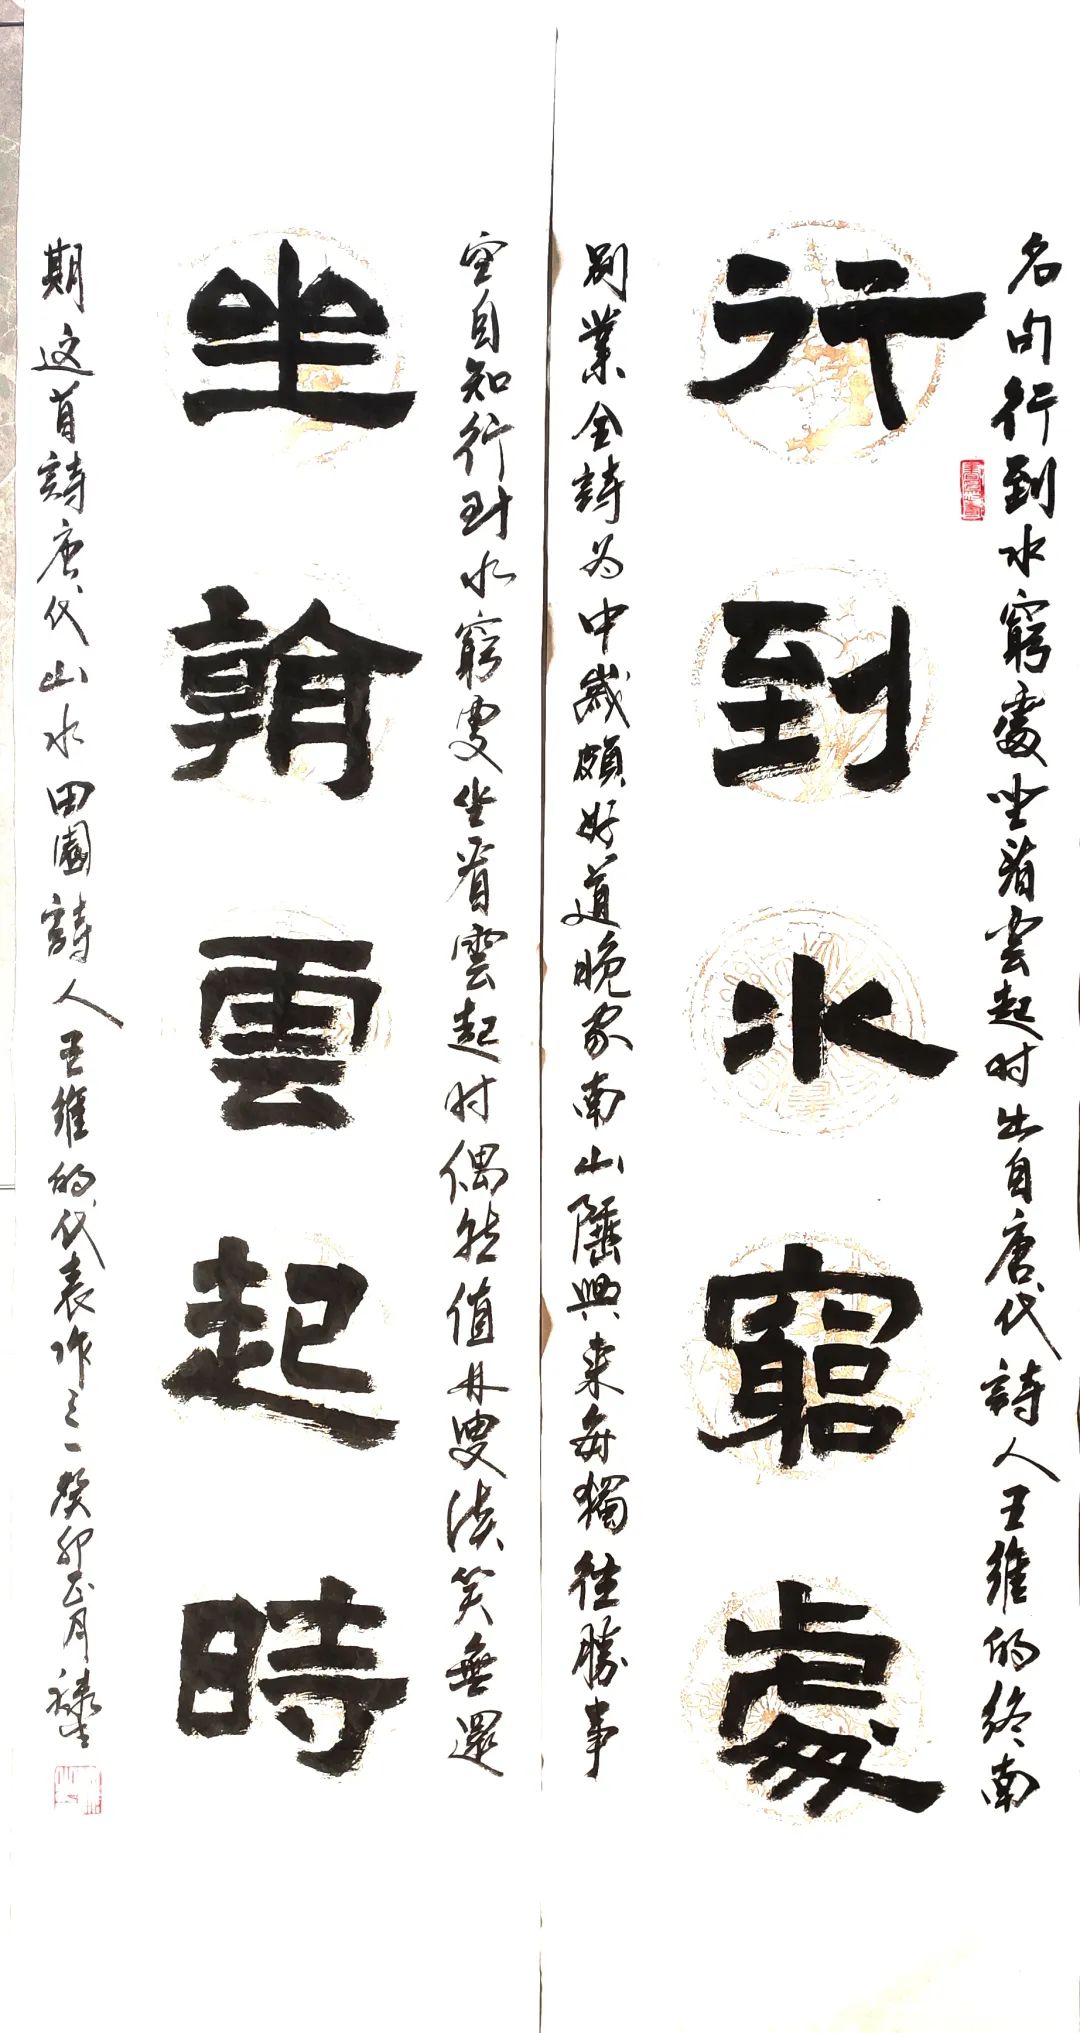 名句行到水窮處坐看雲起时出自唐代詩人王維的終南
行到水窮處
别業全詩为中歲頗好道晚家南山陲興来每獨往勝事
空自知行到水窮处坐看雲起时偶然值林叟談笑無還
坐看雲起時
期这首詩唐代山水田園詩人王維的代表作之一癸卯正月